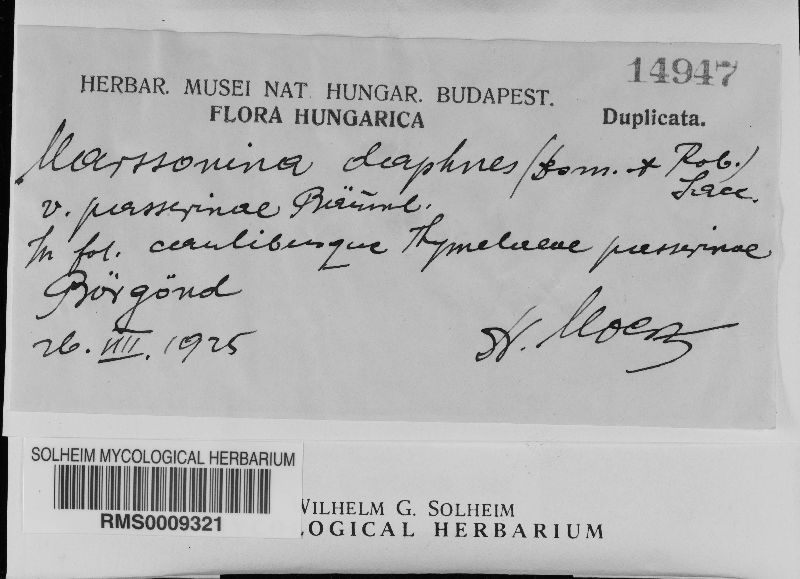 14947
HERBAR. MUSEI NAT. HUNGAR. BUDAPEST.
FLORA HUNGARICA
Duplicata.
Marssonina daphnes (Desm. & Rob.) Sacc.
v. passerinae Bäuml.
In fol. caulibusque Thymelaeae passerinae
Börgönd
26. VIII. 1925
Moesz
SOLHEIM MYCOLOGICAL HERBARIUM
RMS0009321
WILHELM G. SOLHEIM
LOGICAL HERBARIUM